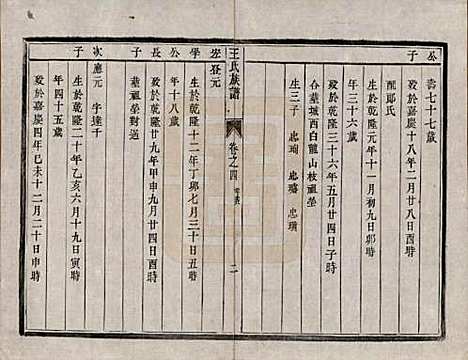 公
子
壽七十七歲
歿於嘉慶十八年二月廿八日酉時
配邱氏
生於乾隆元年十一月初九日卯時
歿於乾隆三十六年五月廿四日子時
年三十六歲
合葬城西白龍山枝祖塋
生三子 忠珣 忠璐 忠璜
王氏族譜
卷之四
二
學癸元
公
長
子
生於乾隆十二年丁卯七月三十日丑時
年十八歲
歿於乾隆廿九年甲申九月廿四日酉時
葬祖塋對過
次
子
應元 字達千
生於乾隆二十年乙亥六月十九日寅時
年四十五歲
歿於嘉慶四年己未十二月二十日申時